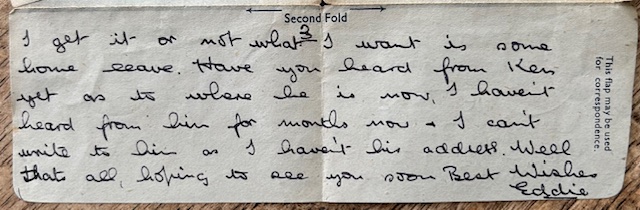 Second Fold
3
I get it or not what I want is some
home leave. Have you heard from Ken
yet as to where he is now, I haven't
heard from him for months now & I can't
write to him as I haven't his address. Well
thats all, hoping to see you soon Best Wishes
Eddie
This flap may be used
for correspondence.